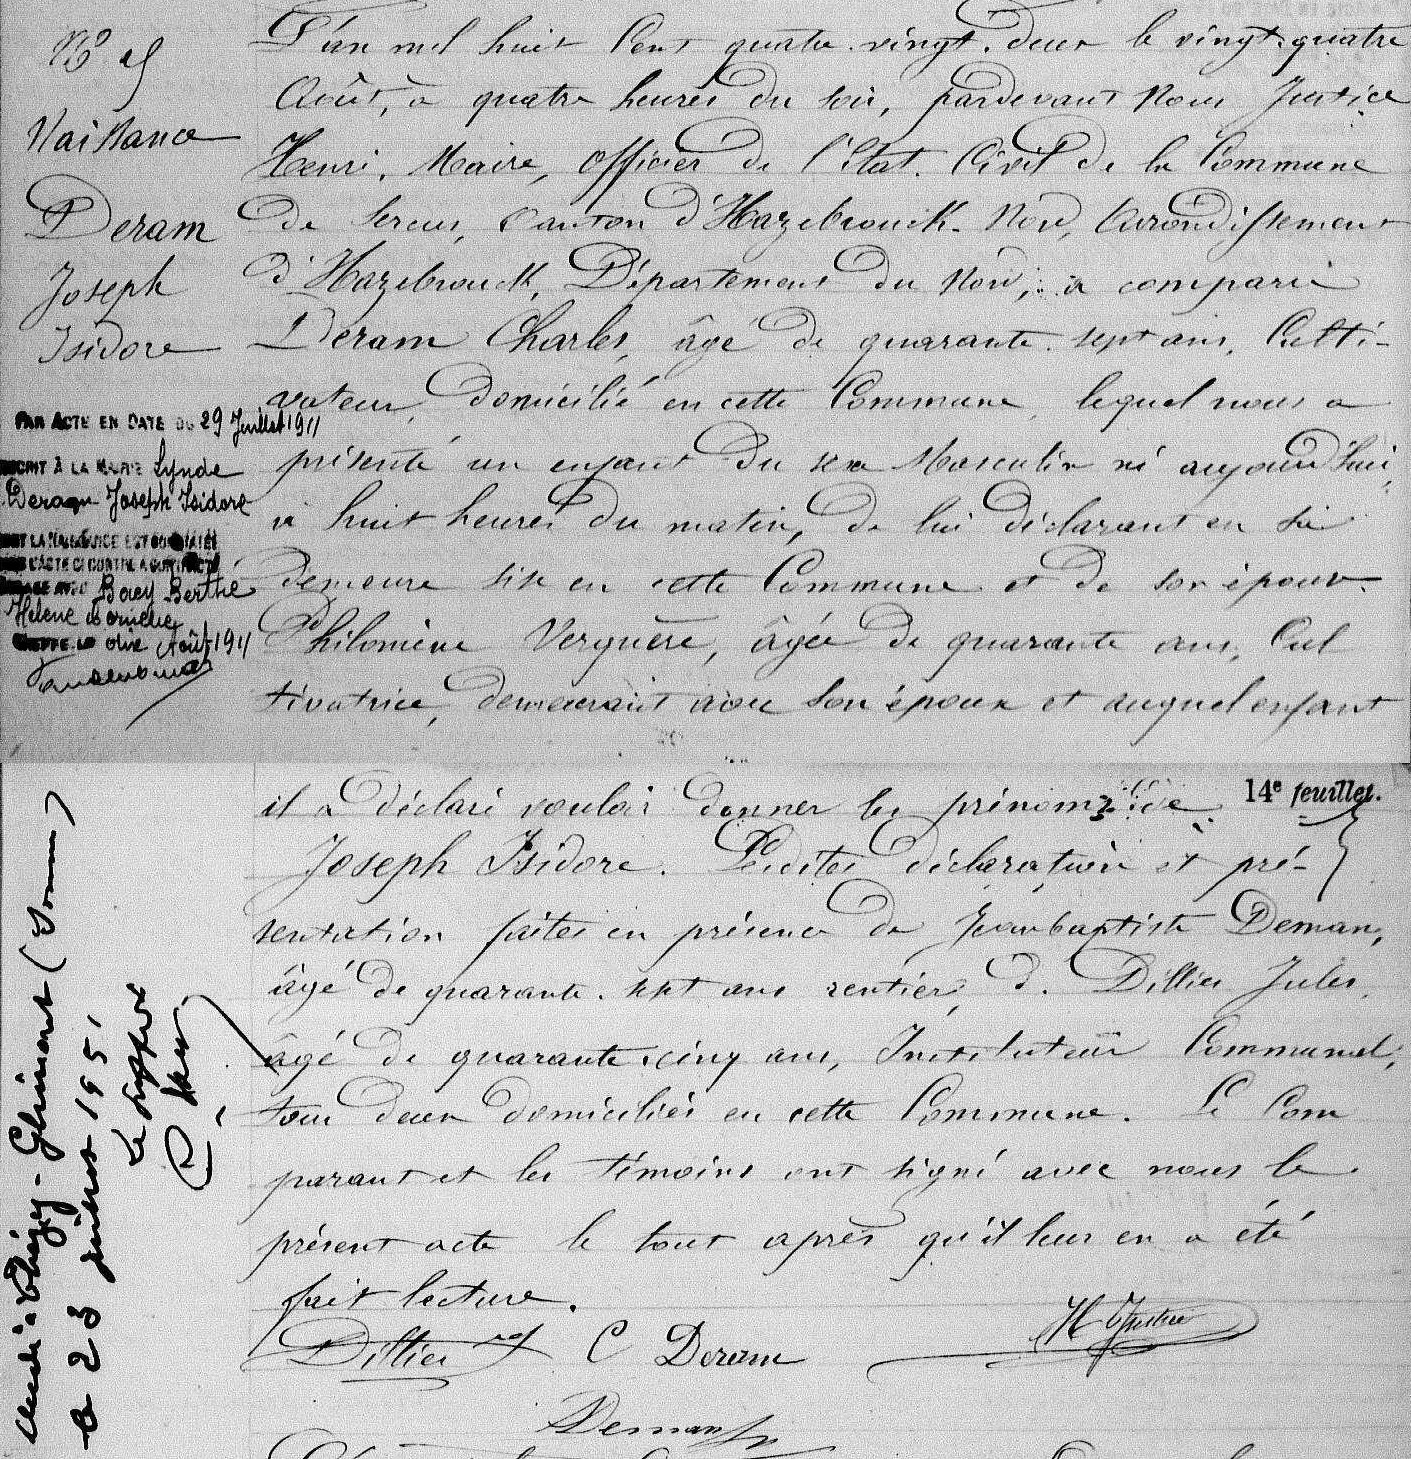 Naissance
Deram
Joseph
Isidore
L'an mil huit Cent quatre-vingt-deux le vingt-quatre
Août, à quatre heures du soir, pardevant Nous Justice
Henri, Maire, Officier de l'Etat-Civil de la Commune
de Sercus, Canton d'Hazebrouck-Nord, Arrondissement
d'Hazebrouck, Département du Nord, a comparu
Deram Charles, âgé de quarante-sept ans, Culti-
vateur, domicilié en cette Commune, lequel nous a
présenté un enfant du sexe Masculin né aujourd'hui,
à huit heures du matin, de lui déclarant en sa
demeure sise en cette Commune et de son épouse
Philomène Verquère, âgée de quarante ans, Cul
tivatrice, demeurant avec son époux et auquel enfant
PAR ACTE EN DATE DU 29 Juillet 1911
INSCRIT À LA MAIRIE Lynde
Deram Joseph Isidore
DONT LA NAISSANCE EST CONSTATÉE
DANS L'ACTE CI CONTRE A CONTRACTÉ
MARIAGE AVEC Baey Berthe
Hélène Cornélie
GREFFE LE onze Août 1911
14e feuillet.
il a déclaré vouloir donner les prénoms de
Joseph Isidore. Lesdites déclaration et pré-
sentation faites en présence de Jeanbaptiste Deman,
âgé de quarante-sept ans rentier, & Dillies Jules,
âgé de quarante-cinq ans, Instituteur Communal,
tous deux domiciliés en cette Commune. Le Com
parant et les témoins ont signé avec nous le
présent acte le tout après qu'il leur en a été
fait lecture.
Dillies C Deram H Justice
Deman
Glimont (Somme)
23 juillet 195
Le Greffier